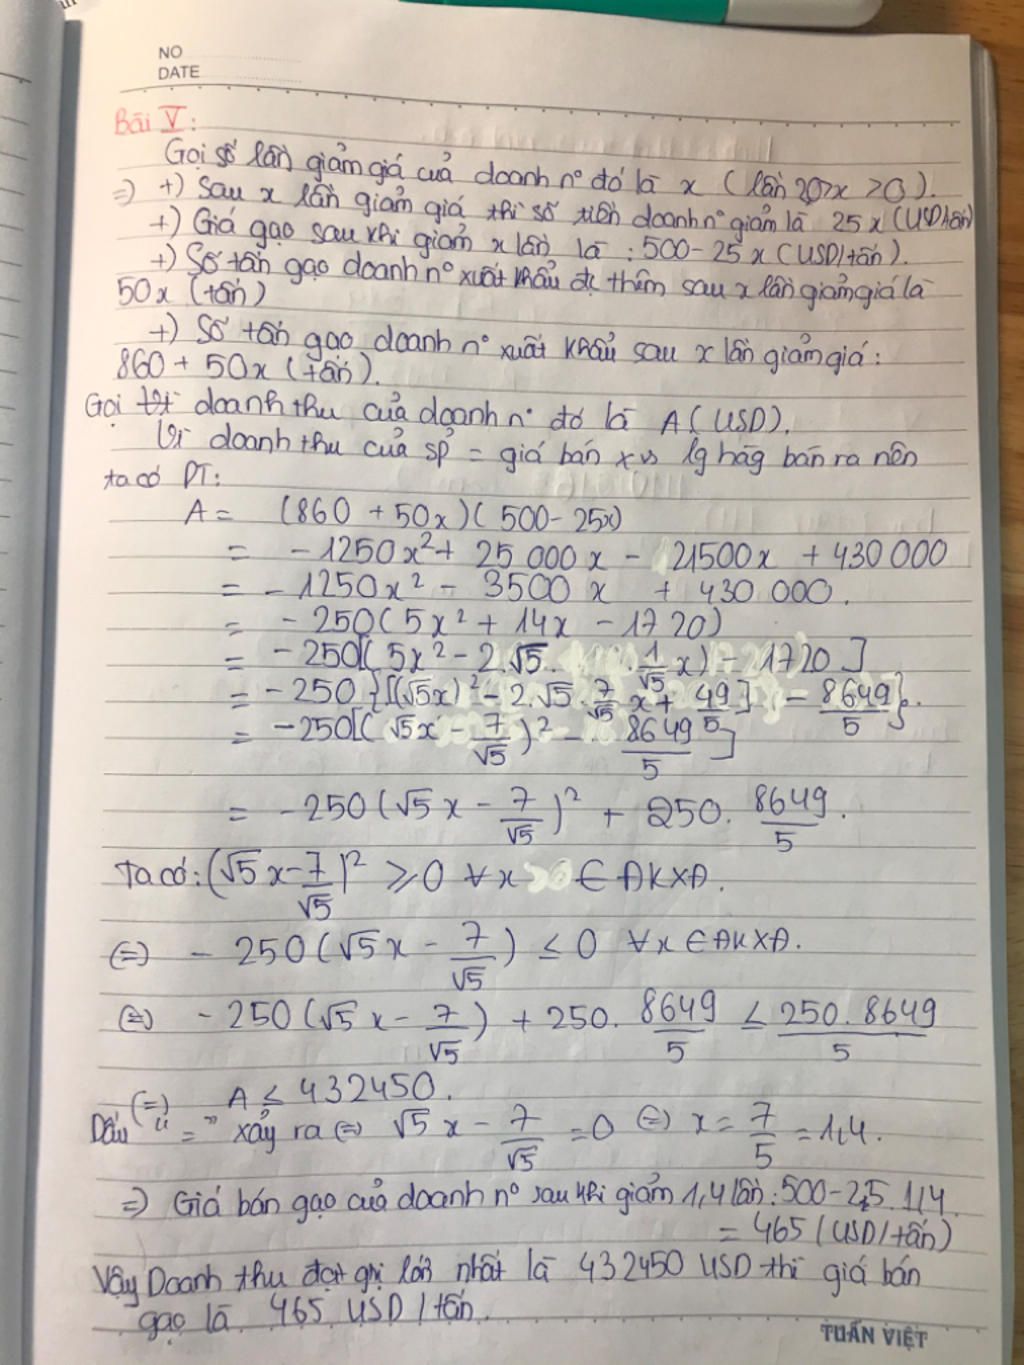 NO
DATE
Bài V:
Gọi số lần giảm giá của doanh nº đó là x (lần 20>x >0).
=> +) Sau x lần giảm giá thì số tiền doanh nº giảm là 25x (USD/tấn)
+) Giá gạo sau khi giảm x lần là : 500 - 25x (USD/tấn).
+) Số tấn gạo doanh nº xuất khẩu đc thêm sau x lần giảm giá là
50x (tấn)
+) Số tấn gạo doanh nº xuất khẩu sau x lần giảm giá:
860 + 50x (tấn).
Gọi doanh thu của doanh nº đó là A (USD).
Vì doanh thu của sp = giá bán x vs lg hàg bán ra nên
ta có PT:
A = (860 + 50x)(500 - 25x)
= -1250x² + 25 000x - 21500x + 430 000
= -1250x² - 3500 x + 430 000.
= -250(5x² + 14x - 1720)
= -250[(5x² - 2.√5. 1/√5 x) - 1720]
= -250{[(√5x)² - 2.√5. 7/√5 x + 49/5] - 8649/5}.
= -250[(√5x - 7/√5)² - 8649/5]
= -250(√5x - 7/√5)² + 250. 8649/5.
Ta có: (√5x - 7/√5)² ≥ 0 ∀x ∈ ĐKXĐ.
(=) - 250(√5x - 7/√5) ≤ 0 ∀x ∈ ĐKXĐ.
(=) - 250(√5x - 7/√5) + 250. 8649/5 ≤ 250. 8649/5
(=) A ≤ 432450.
Dấu "=" xảy ra (=) √5x - 7/√5 = 0 (=) x = 7/5 = 1,4.
=) Giá bán gạo của doanh nº sau khi giảm 1,4 lần: 500 - 25.1,4
= 465 (USD/tấn)
Vậy Doanh thu đạt gtrị lớn nhất là 432450 USD thì giá bán
gạo là 465 USD/tấn.
TUẤN VIỆT